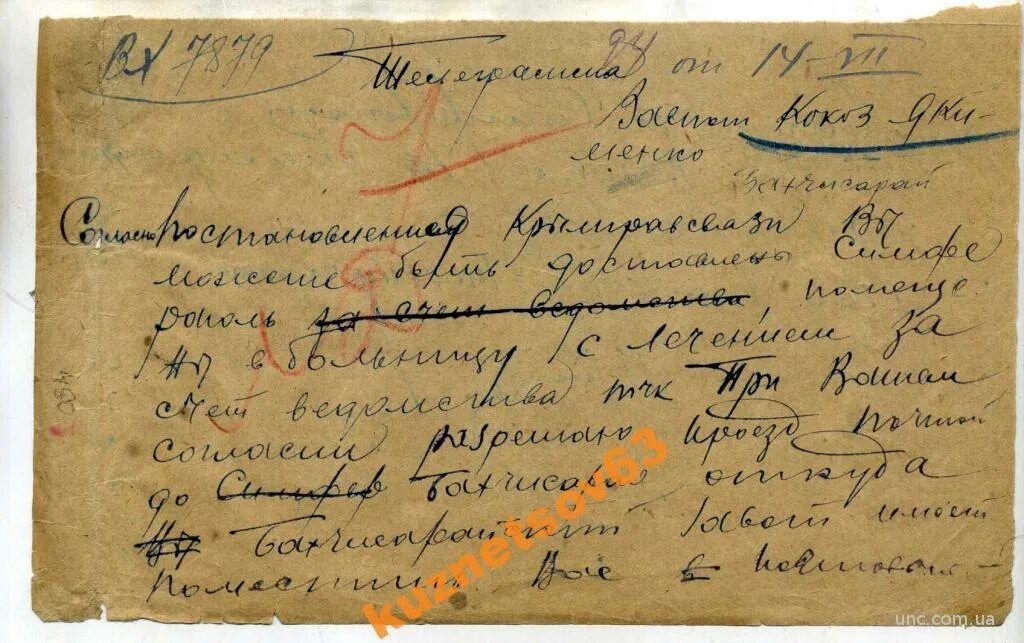 Вх 7879 Телеграмма 24 от 14-VII
Кокоз Яки-
менко
Бахчисарай
Согласно постановления Крымправсвязи Вы
можете быть доставлены Симфе
рополь за счет ведомства, помеще
ны в больницу с лечением за
счет ведомства тчк При Вашем
согласии разрешаю проезд почтой
до Симфер Бахчисарая откуда
ны Бахчисарайский имеет
поместить Вас в
kuznetsov63
unc.com.ua